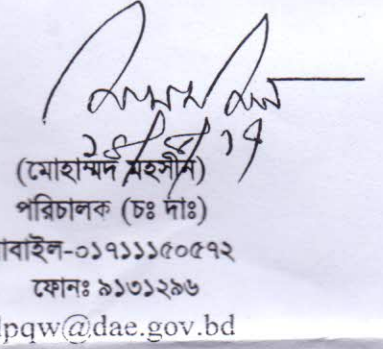 (মোহাম্মদ মহসীন)
পরিচালক (চঃ দাঃ)
বাইল-০১৭১১১৫০৫৭২
ফোনঃ ৯১৩১২৯৬
dpqw@dae.gov.bd